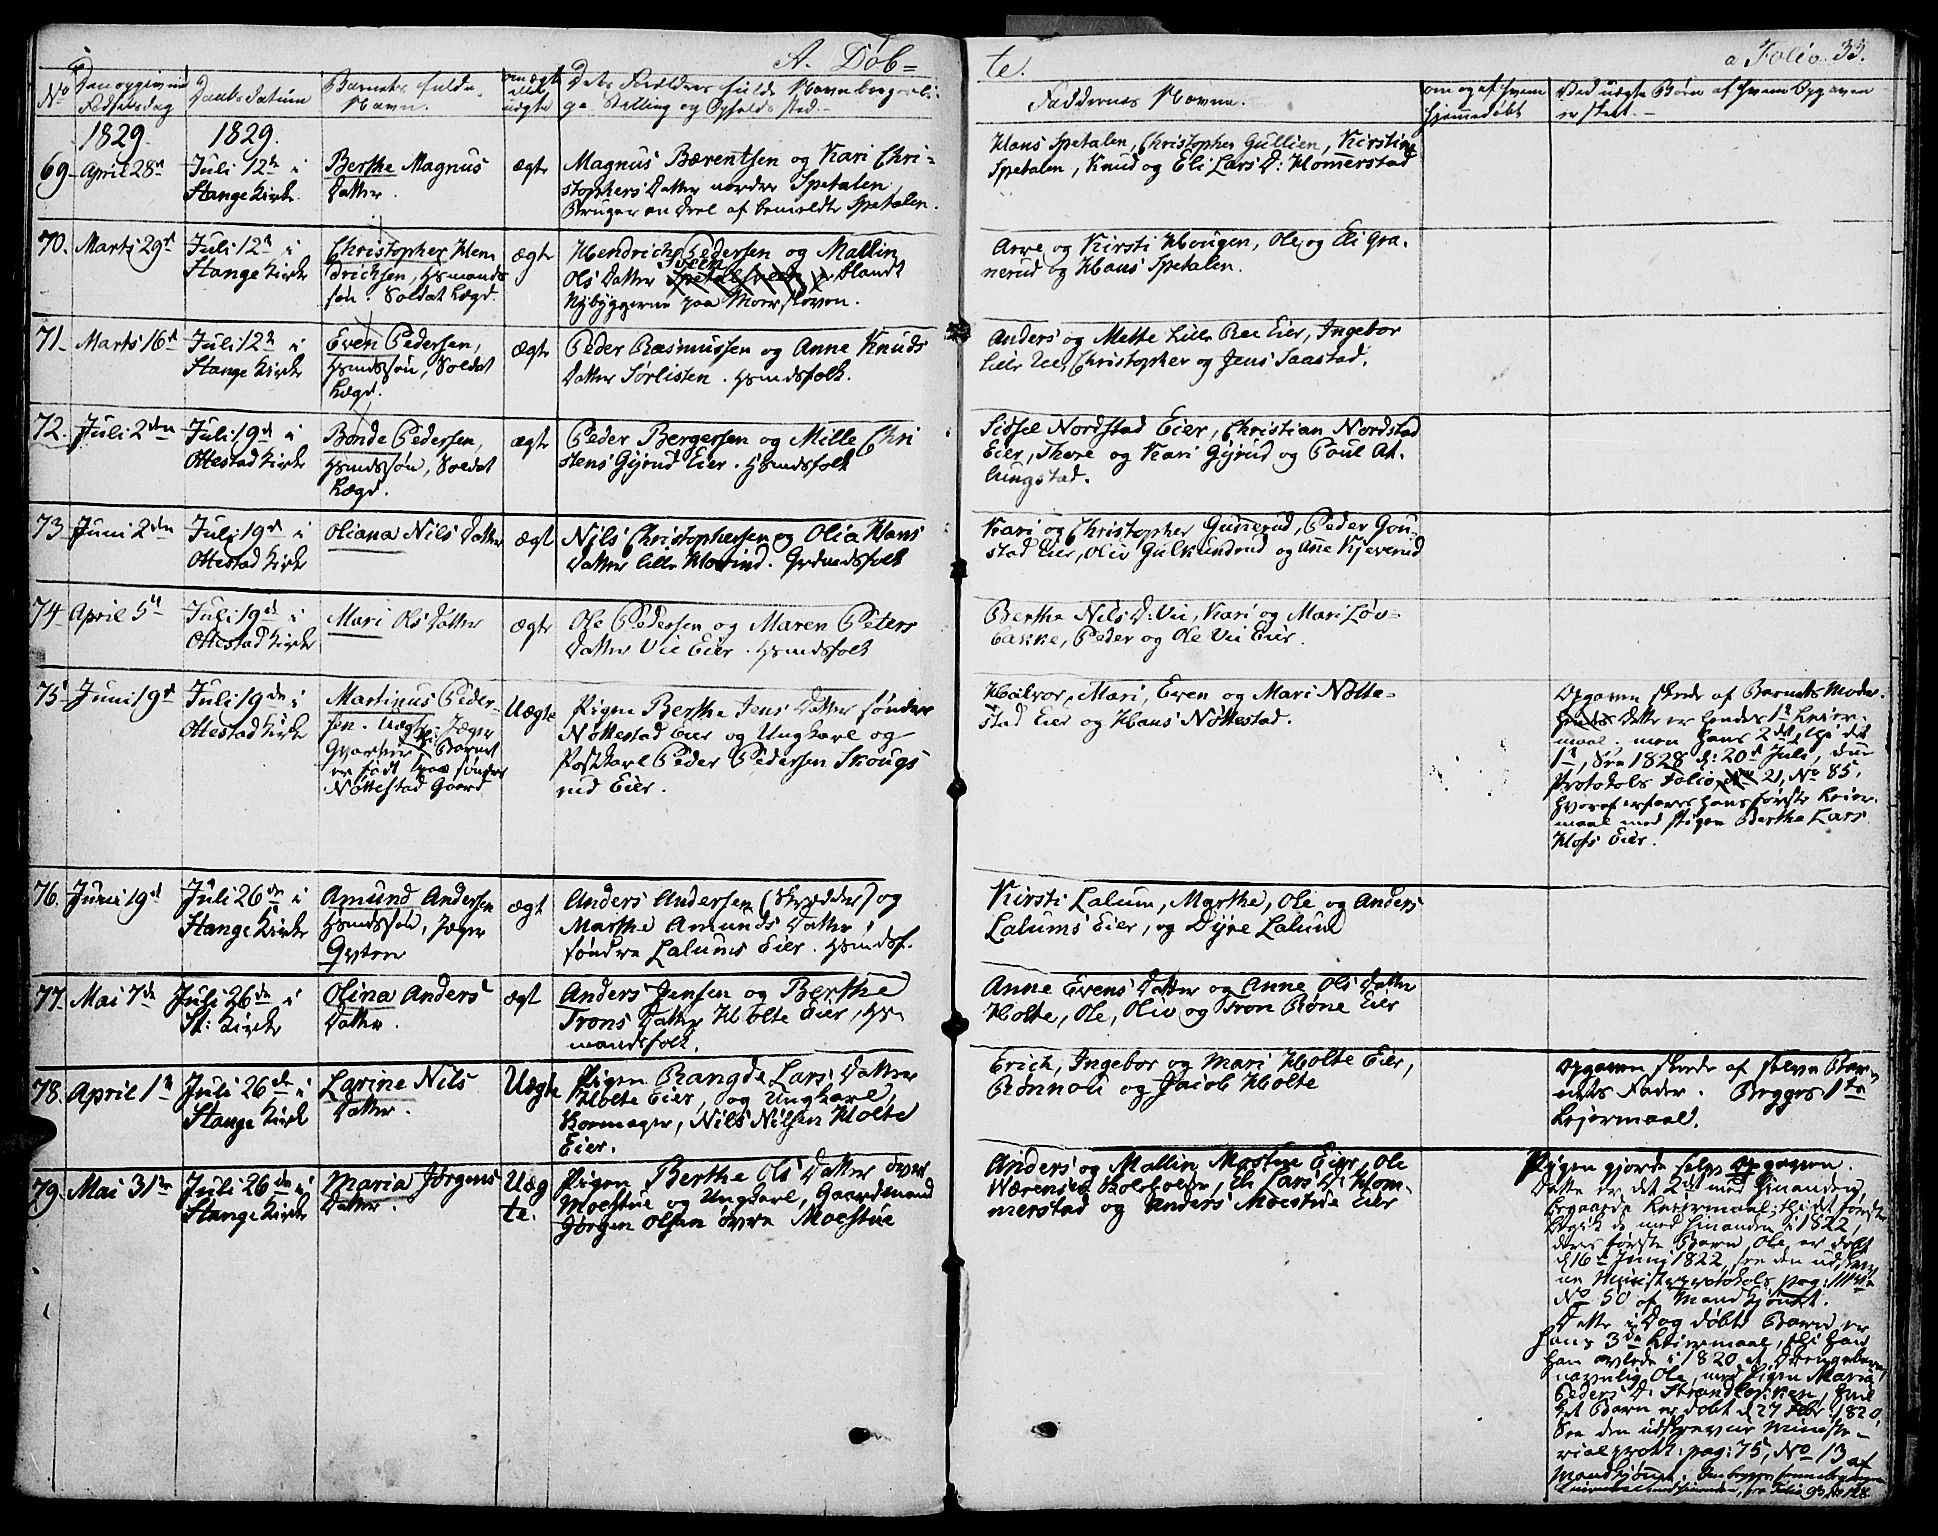 A. Døb=
te.
a Folio. 33.
No
Den opgivne Fødselsdag
Daabsdatum
Barnets fulde Navn.
om ægte eller uægte
Dets Forældres fulde Navn borgerli-
ge Stilling og Opholds Sted.
Faddernes Navne.
om og af hvem hjemmedøbt
Ved uægte Børn af hvem Opgaven er skeet.
1829.
1829.
69 April 28de
Juli 12te i
Stange Kirke.
Berthe Magnus
Datter.
ægte
Magnus Bærentsen og Kari Chri-
stophers Datter nordre Spetalen
Bruger en Deel af bemeldte Spetalen.
Hans Spetalen, Christopher Gullien, Kirstine
Spetalen, Knud og Eli Lars D: Homerstad
70. Marts 29de
Juli 12te i
Stange Kirke
Christopher Hen
drichsen, Hsmands
søn. Soldat Lægd.
ægte
Hendrich Pedersen og Mallin
Ols Datter blandt
Nybyggerne paa Moerskoven.
Arne og Kirsti Hougen, Ole og Eli Gra-
nerud og Hans Spetalen.
71 Marts 16de
Juli 12te i
Stange Kirke
Even Pedersen,
Hsmdssøn, Soldat
Lægd.
ægte
Peder Rasmussen og Anne Knuds
Datter Sørlisten. Hsmdsfolk.
Anders og Mette Lille Ree Eier, Ingebor
Lille Ree, Christopher og Jens Saastad.
72. Juli 2den
Juli 19de i
Ottestad Kirke
Bonde Pedersen,
Hsmdssøn, Soldat
Lægd.
ægte
Peder Bergersen og Mille Chri
stens Gyrud Eier. Hsmdsfolk
Sidsel Nordstad Eier, Christian Nordstad
Eier, Thore og Kari Gyrud og Poul At-
lungstad.
73 Juni 2den
Juli 19de i
Ottestad Kirke
Oliana Nils Datter
ægt
Nils Christophersen og Olia Hans
Datter lille Horind. Grdmdsfolk
Kari og Christopher Gunnerud, Peder Gou-
stad Eier, Oliv Gulkundrud og Ane Kjeverud
74 April 5te
Juli 19de i
Ottestad Kirke
Mari Ols Datter
ægte
Ole Pedersen og Maren Peters
Datter Vie Eier. Hsmdsfolk
Berthe Nils D: Vii, Kari og Mari Løv-
bakke, Peder og Ole Vii Eier.
75 Juni 19de
Juli 19de i
Ottestad Kirke
Martinus Peder-
sen. Uægte. Jæger
Barnet
er født paa søndre
Nøttestad Gaard
Uægte
Pigen Berthe Jens Datter søndre
Nøttestad Eier og Ungkarl og
Postkarl Peder Pedersen Skougs
rud Eier.
Halvor, Mari, Even og Mari Nøtte-
stad Eier og Hans Nøttestad.
Opgaven skede af Barnets Moder.
Dette er hendes 1ste Leier-
maal. men hans 2det, thi det
1ste, see 1828 d: 20de Juli, denne
Protokols Folio 21, No 85,
hvoraf erfares hans første Leier-
maal med Pigen Berthe Lars
Hofs Eier.
76. Juni 19de
Juli 26de i
Stange Kirke
Amund Andersen
Hsmdssøn, Jæger
ægt
Anders Andersen (Skredder) og
Marthe Amunds Datter,
søndre Lalums Eier. Hsmdsf.
Kirsti Lalum, Marthe, Ole og Anders
Lalums Eier, og Dyre Lalum
77. Mai 7de
Juli 26de i
St: Kirke
Olina Anders
Datter.
ægt
Anders Jensen og Berthe
Trons Datter Holte Eier, Hs-
mandsfolk.
Anne Evens Datter og Anne Ols Datter
Holte, Ole, Oliv og Tron Røne Eier
78. April 1ste
Juli 26de i
Stange Kirke
Larine Nils
Datter.
Uægte
Pigen Rangde Lars Datter
Holte Eier, og Ungkarl,
Kormager, Nils Nilsen Holte
Eier.
Erich, Ingebor og Mari Holte Eier,
Rønnou og Jacob Holte
Opgaven skede af selve Bar-
nets Fader. Begges 1ste
Leiermaal.
79. Mai 31te
Juli 26de i
Stange Kirke
Maria Jørgens
Datter.
Uæg
te.
Pigen Berthe Ols Datter øvre
Moestue og Ungkarl, Gaardmand
Jørgen Olsen øvre Moestue
Anders og Mallin Mostue Eier, Ole
Eli Lars D: Hom-
merstad og Anders Moestue Eier
Pigen gjorde selv Opgaven.
Dette er det 2det med hinanden
begaaede Leiermaal; thi det første
begik de med hinanden i 1822,
deres første Barn Ole, er døbt
d 16de Juni 1822, see den udskrev
ne Ministerprotokols pag:
No 50 af Mandkjønnet.
Dette i Dag døbte Barn er
hans 3de Leiermaal, thi han
han avlede i 1820 et Drengebarn,
navnlig Ole, med Pigen Maria
Peders D: Strandløkken, hvil
ket Barn er døbt d 27 Febr: 1820,
See den udskrevne Ministe-
rialprotk: pag: 75, No 13 af
Mandkjønnet.
see Folio 93 No 128